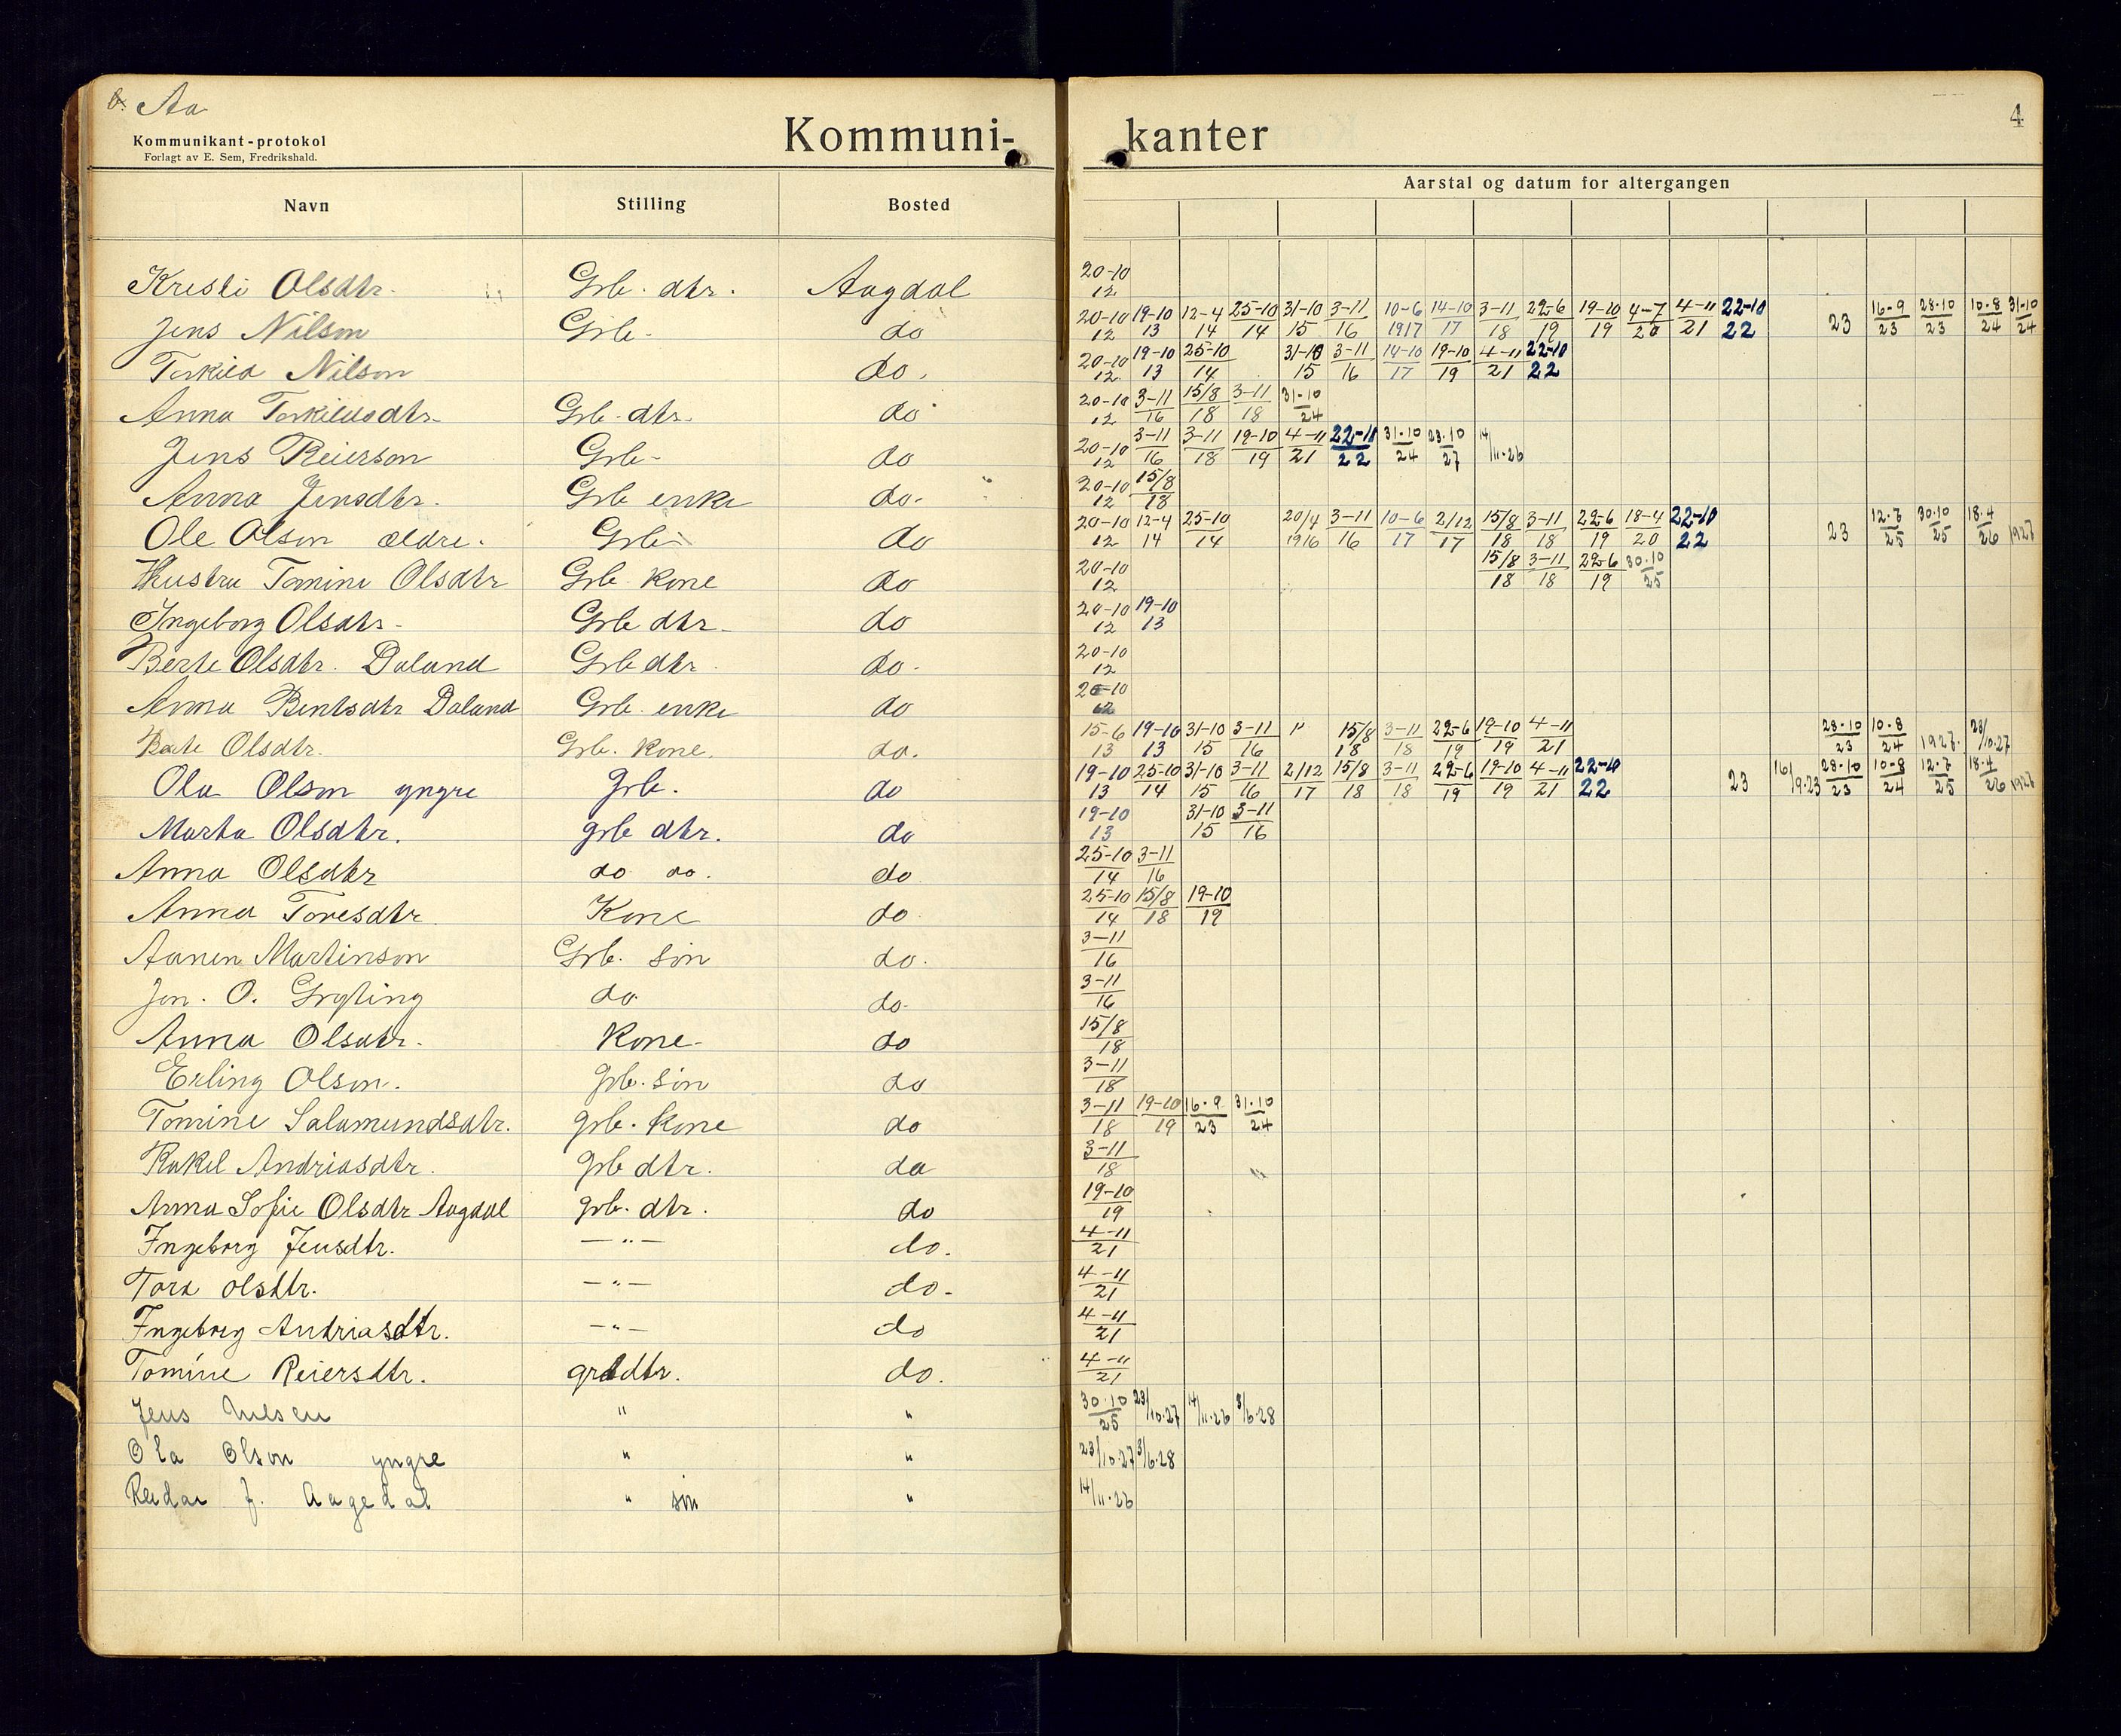 Aa
Kommunikant-protokol
Forlagt av E. Sem, Fredrikshald.
Kommuni- kanter 4
Aarstal og datum for altergangen
Navn Stilling Bosted
Kristi Olsdtr. Grb. dtr. Aagdal 20-10/12
Jens Nilson Grb- do 20-10/12 19-10/13 12-4/14 25-10/14 31-10/15 3-11/16 10-6/1917 14-10/17 3-11/18 22-6/19 19-10/19 4-7/20 4-11/21 22-10/22 23 16-9/23 28-10/23 10-8/24 31-10/24
Torkild Nilson do. 20-10/12 19-10/13 25-10/14 31-10/15 3-11/16 14-10/17 19-10/19 4-11/21 22-10/22
Anna Torkildsdtr. Grb-dtr- do 20-10/12 3-11/16 15/8/18 3-11/18 31-10/24
Jens Reierson Grb- do 20-10/12 3-11/16 3-11/18 19-10/19 4-11/21 22-11/22 31-10/24 23-10/27 14/11-26
Anna Jensdtr. Grb enke do- 20-10/12 15/8/18
Ole Olson ældre. Grb- do 20-10/12 12-4/14 25-10/14 20/4/1916 3-11/16 10-6/17 2/12/17 15/8/18 3-11/18 22-6/19 18-4/20 22-10/22 23 12-7/25 30-10/25 18-4/26 1927
Hustru Tomine Olsdtr Grb kone do 20-10/12 15/8/18 3-11/18 22-6/19 30-10/25
Ingeborg Olsdtr- Grb dtr- do 20-10/12 19-10/13
Berte Olsdtr. Daland Grb dtr. do- 20-10/12
Anna Bentsdtr Daland Grb. enke do 20-10/12
Berte Olsdtr. Grb. kone. do. 15-6/13 19-10/13 31-10/15 3-11/16 15/8/18 3-11/18 22-6/19 19-10/19 4-11/21 28-10/23 10-8/24 1927. 23/10-27
Ola Olson yngre grb. do 19-10/13 25-10/14 31-10/15 3-11/16 2/12/17 15/8/18 3-11/18 22-6/19 19-10/19 4-11/21 22-10/22 23 16/9-23 28-10/23 10-8/24 12-7/25 18-4/26 1927
Marta Olsdtr. grb dtr. do 19-10/13 31-10/15 3-11/16
Anna Olsdtr do do. do 25-10/14 3-11/16
Anna Toresdtr. Kone do 25-10/14 15/8/18 19-10/19
Aanen Martinson Grb. søn do. 3-11/16
Jon. O. Grøting do. do- 3-11/16
Anna Olsdtr. Kone- do 15/8/18
Erling Olson. grb. søn do 3-11/18
Tomine Salamundsdtr. grb. kone do 3-11/18 19-10/19 16-9/23 31-10/24
Rakel Andriasdtr. grb dtr. do 3-11/18
Anna Sofie Olsdtr Aagdal grb. dtr. do 19-10/19
Ingeborg Jensdtr. — " — do. 4-11/21
Tora olsdtr. — " — do- 4-11/21
Ingeborg Andriasdtr. — " — do 4-11/21
Tomine Reiersdtr. grbdtr. do. 4-11/21
Jens Nilsen " " 30-10/25 23/10-27 14/11-26 3/6-28
Ola Olson yngre " " 23/10-27 3/6-28
Reidar J. Aagedal " søn " 14/11-26